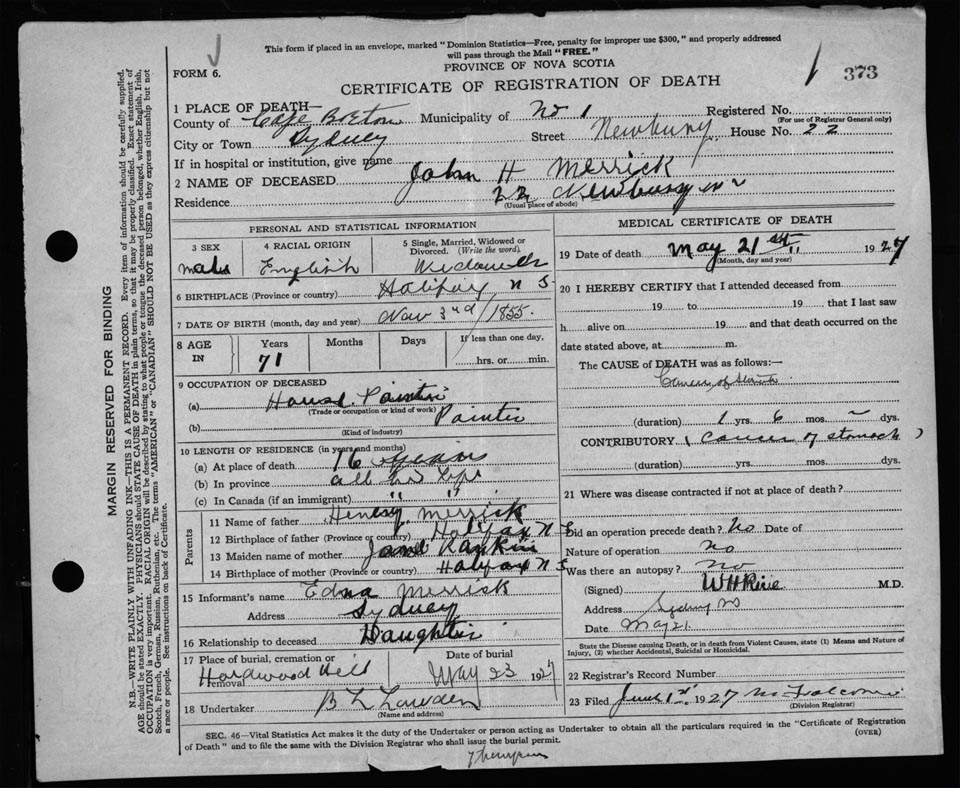 This form if placed in an envelope, marked "Dominion Statistics—Free, penalty for improper use $300," and properly addressed
will pass through the Mail "FREE."
FORM 6.
PROVINCE OF NOVA SCOTIA
CERTIFICATE OF REGISTRATION OF DEATH
373
1 PLACE OF DEATH—
County of Cape Breton Municipality of No 1 Registered No.
(For use of Registrar General only)
City or Town Sydney Street Newbury House No. 22
If in hospital or institution, give name
2 NAME OF DECEASED John H Merrick
Residence 22 Newbury
(Usual place of abode)
PERSONAL AND STATISTICAL INFORMATION
3 SEX
4 RACIAL ORIGIN
5 Single, Married, Widowed or Divorced. (Write the word)
Male English
6 BIRTHPLACE (Province or country) Halifax N S
7 DATE OF BIRTH (month, day and year) Nov 3rd / 1855.
8 AGE IN
Years Months Days If less than one day,
71
hrs. or min.
9 OCCUPATION OF DECEASED
(a) House Painter
(Trade or occupation or kind of work)
(b) Painter
(Kind of industry)
10 LENGTH OF RESIDENCE (in years and months)
(a) At place of death 16 years
(b) In province all his life
(c) In Canada (if an immigrant) " "
Parents
11 Name of father Henry Merrick
12 Birthplace of father (Province or country) Halifax N S
13 Maiden name of mother Jane Rankin
14 Birthplace of mother (Province or country) Halifax N S
15 Informant's name Edna Merrick
Address Sydney
16 Relationship to deceased Daughter
17 Place of burial, cremation or removal Hardwood Hill
Date of burial
May 23 1927
18 Undertaker
(Name and address)
MEDICAL CERTIFICATE OF DEATH
19 Date of death May 21st 1927
(Month, day and year)
20 I HEREBY CERTIFY that I attended deceased from
19 to 19 that I last saw
h alive on 19 and that death occurred on the
date stated above, at m.
The CAUSE of DEATH was as follows:—
Cancer of
(duration) 1 yrs. 6 mos. ~ dys.
CONTRIBUTORY (Cancer of stomach)
(duration) yrs. mos. dys.
21 Where was disease contracted if not at place of death?
Did an operation precede death? No Date of
Nature of operation No
Was there an autopsy? No
(Signed) M.D.
Address Sydney NS
Date May 21.
State the Disease causing Death, or in death from Violent Causes, state (1) Means and Nature of
Injury, (2) whether Accidental, Suicidal or Homicidal.
22 Registrar's Record Number
23 Filed June 1st 1927
(Division Registrar)
SEC. 46—Vital Statistics Act makes it the duty of the Undertaker or person acting as Undertaker to obtain all the particulars required in the "Certificate of Registration
of Death" and to file the same with the Division Registrar who shall issue the burial permit.
(OVER)
Thompson
MARGIN RESERVED FOR BINDING
N.B.—WRITE PLAINLY WITH UNFADING INK—THIS IS A PERMANENT RECORD. Every item of information should be carefully supplied.
AGE should be stated EXACTLY. PHYSICIANS should STATE CAUSE OF DEATH in plain terms, so that it may be properly classified. Exact statement of
OCCUPATION is very important. RACIAL ORIGIN will be described by stating to what people or tongue the deceased person belonged, whether English, Irish,
Scotch, French, German, Russian, Ruthenian, etc. The terms "AMERICAN" or "CANADIAN" SHOULD NOT BE USED as they express citizenship but not
a race or people. See instructions on back of Certificate.